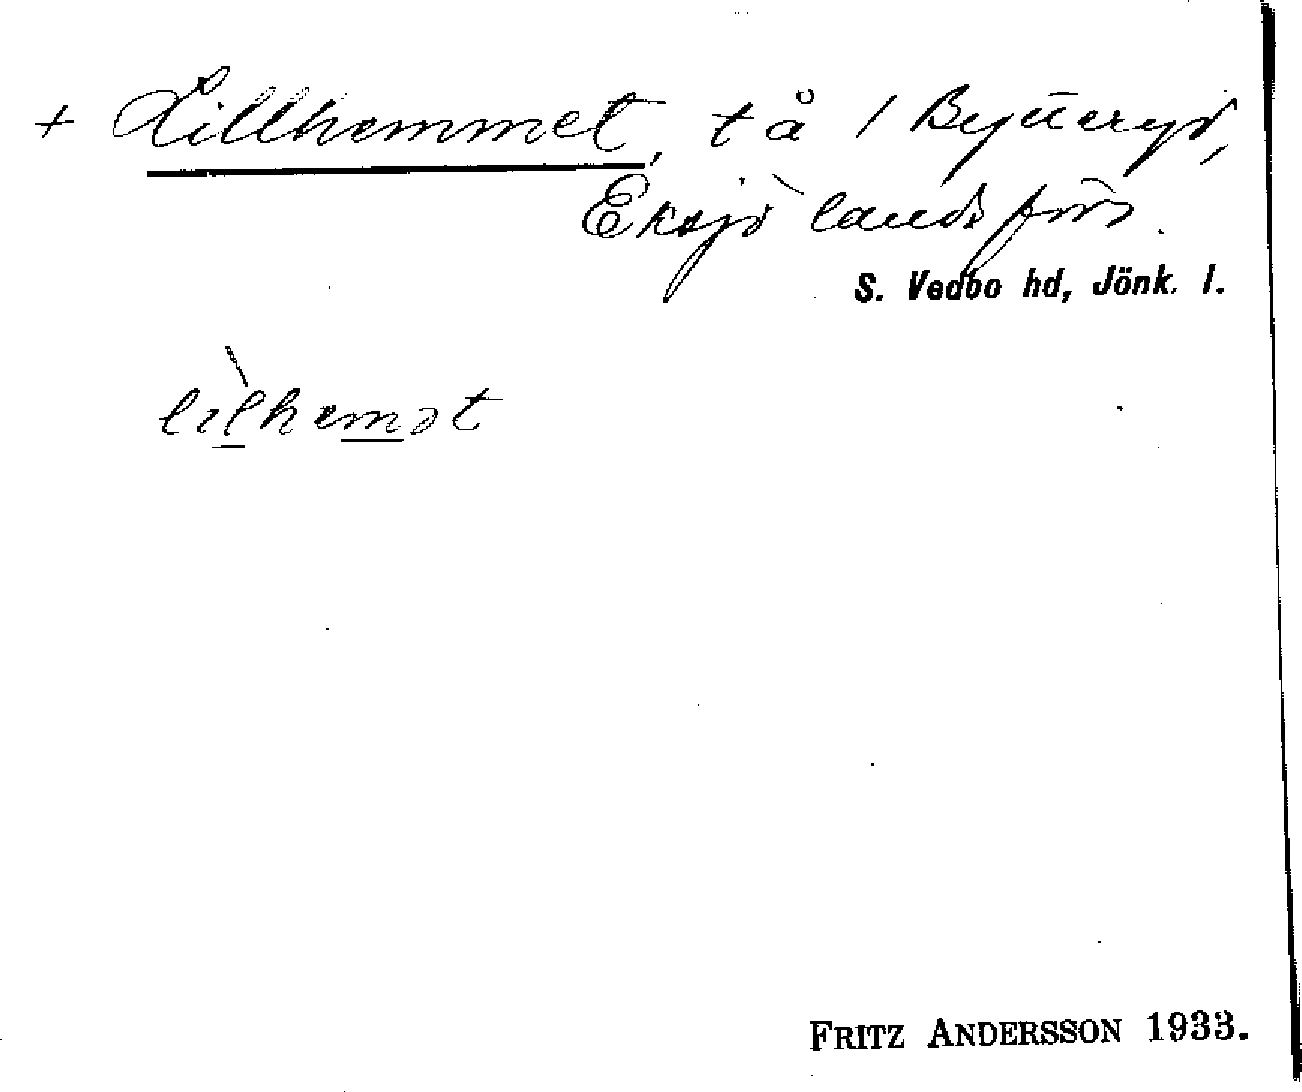 + Lillhemmet, tå / Bytteryd,
Eksjö landsförs.
S. Vedbo hd, Jönk. l.
lìlhemət
FRITZ ANDERSSON 1933.